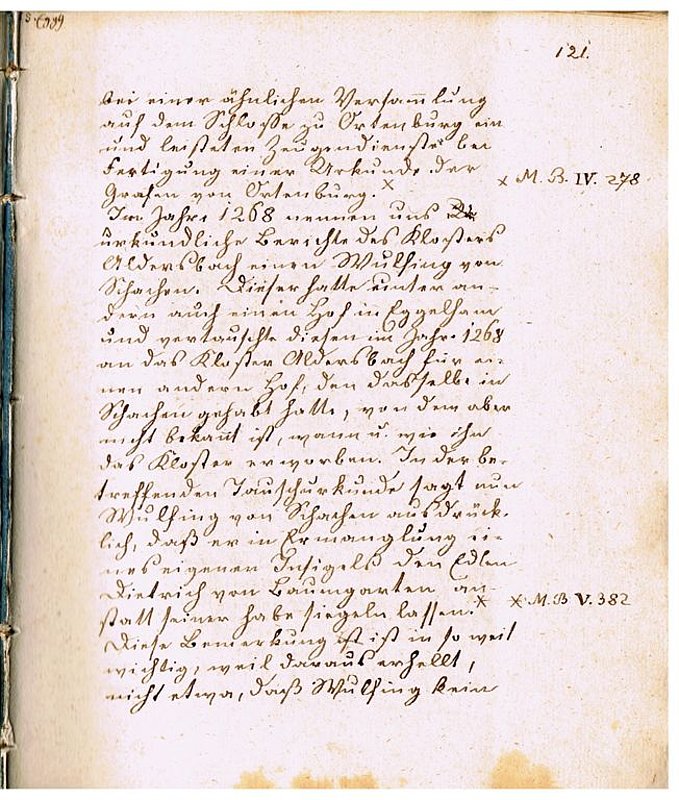 121.
bei einer ähnlichen Versam̅lung
auf dem Schlosse zu Ortenburg ein
und leisteten Zeugendienste bei
Fertigung einer Urkunde der
Grafen von Ortenburg. × × M. B. IV. 278
Im Jahre 1268 nennen uns
urkundliche Berichte des Klosters
Aldersbach einen Wulfing von
Schachen. Dieser hatte unter an-
dern auch einen Hof in Eggelham
und vertauschte diesen im Jahre 1268
an das Kloster Aldersbach für ei-
nen andern Hof, den dasselbe in
Schachen gehabt hatte, von dem aber
nicht bekan̅t ist, wann u. wie ihn
das Kloster erworben. In der be-
treffenden Tauschurkunde sagt nun
Wulfing von Schachen ausdrück-
lich, daß er in Ermanglung ei-
nes eigenen Insigels den Edlen
Dietrich von Baumgarten an-
statt seiner habe siegeln lassen. × × M. B. V. 382
Diese Bemerkung ist ist in so weit
wichtig, weil daraus erhellt,
nicht etwa, daß Wulfing kein